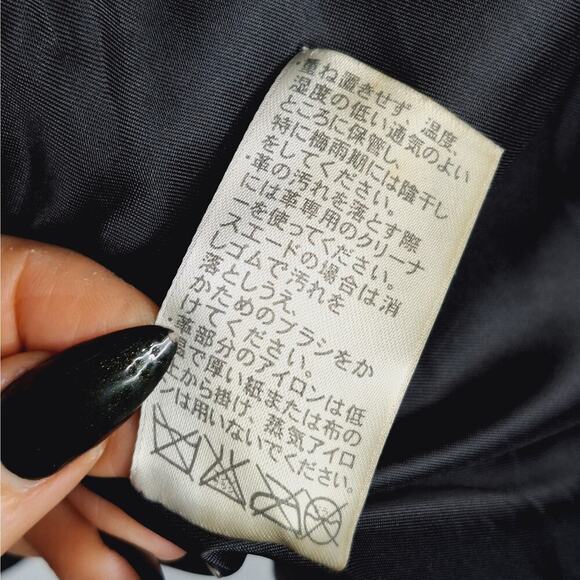 ・重ね置きせず、温度、
湿度の低い通気のよい
ところに保管し、
特に梅雨期には陰干し
をしてください。
・革の汚れを落とす際
には革専用のクリーナ
ーを使ってください。
スエードの場合は消
しゴムで汚れを
落としうえ、
かためのブラシをか
けてください。
・革部分のアイロンは低
温で厚い紙または布の
上から掛け、蒸気アイロ
ンは用いないでください。